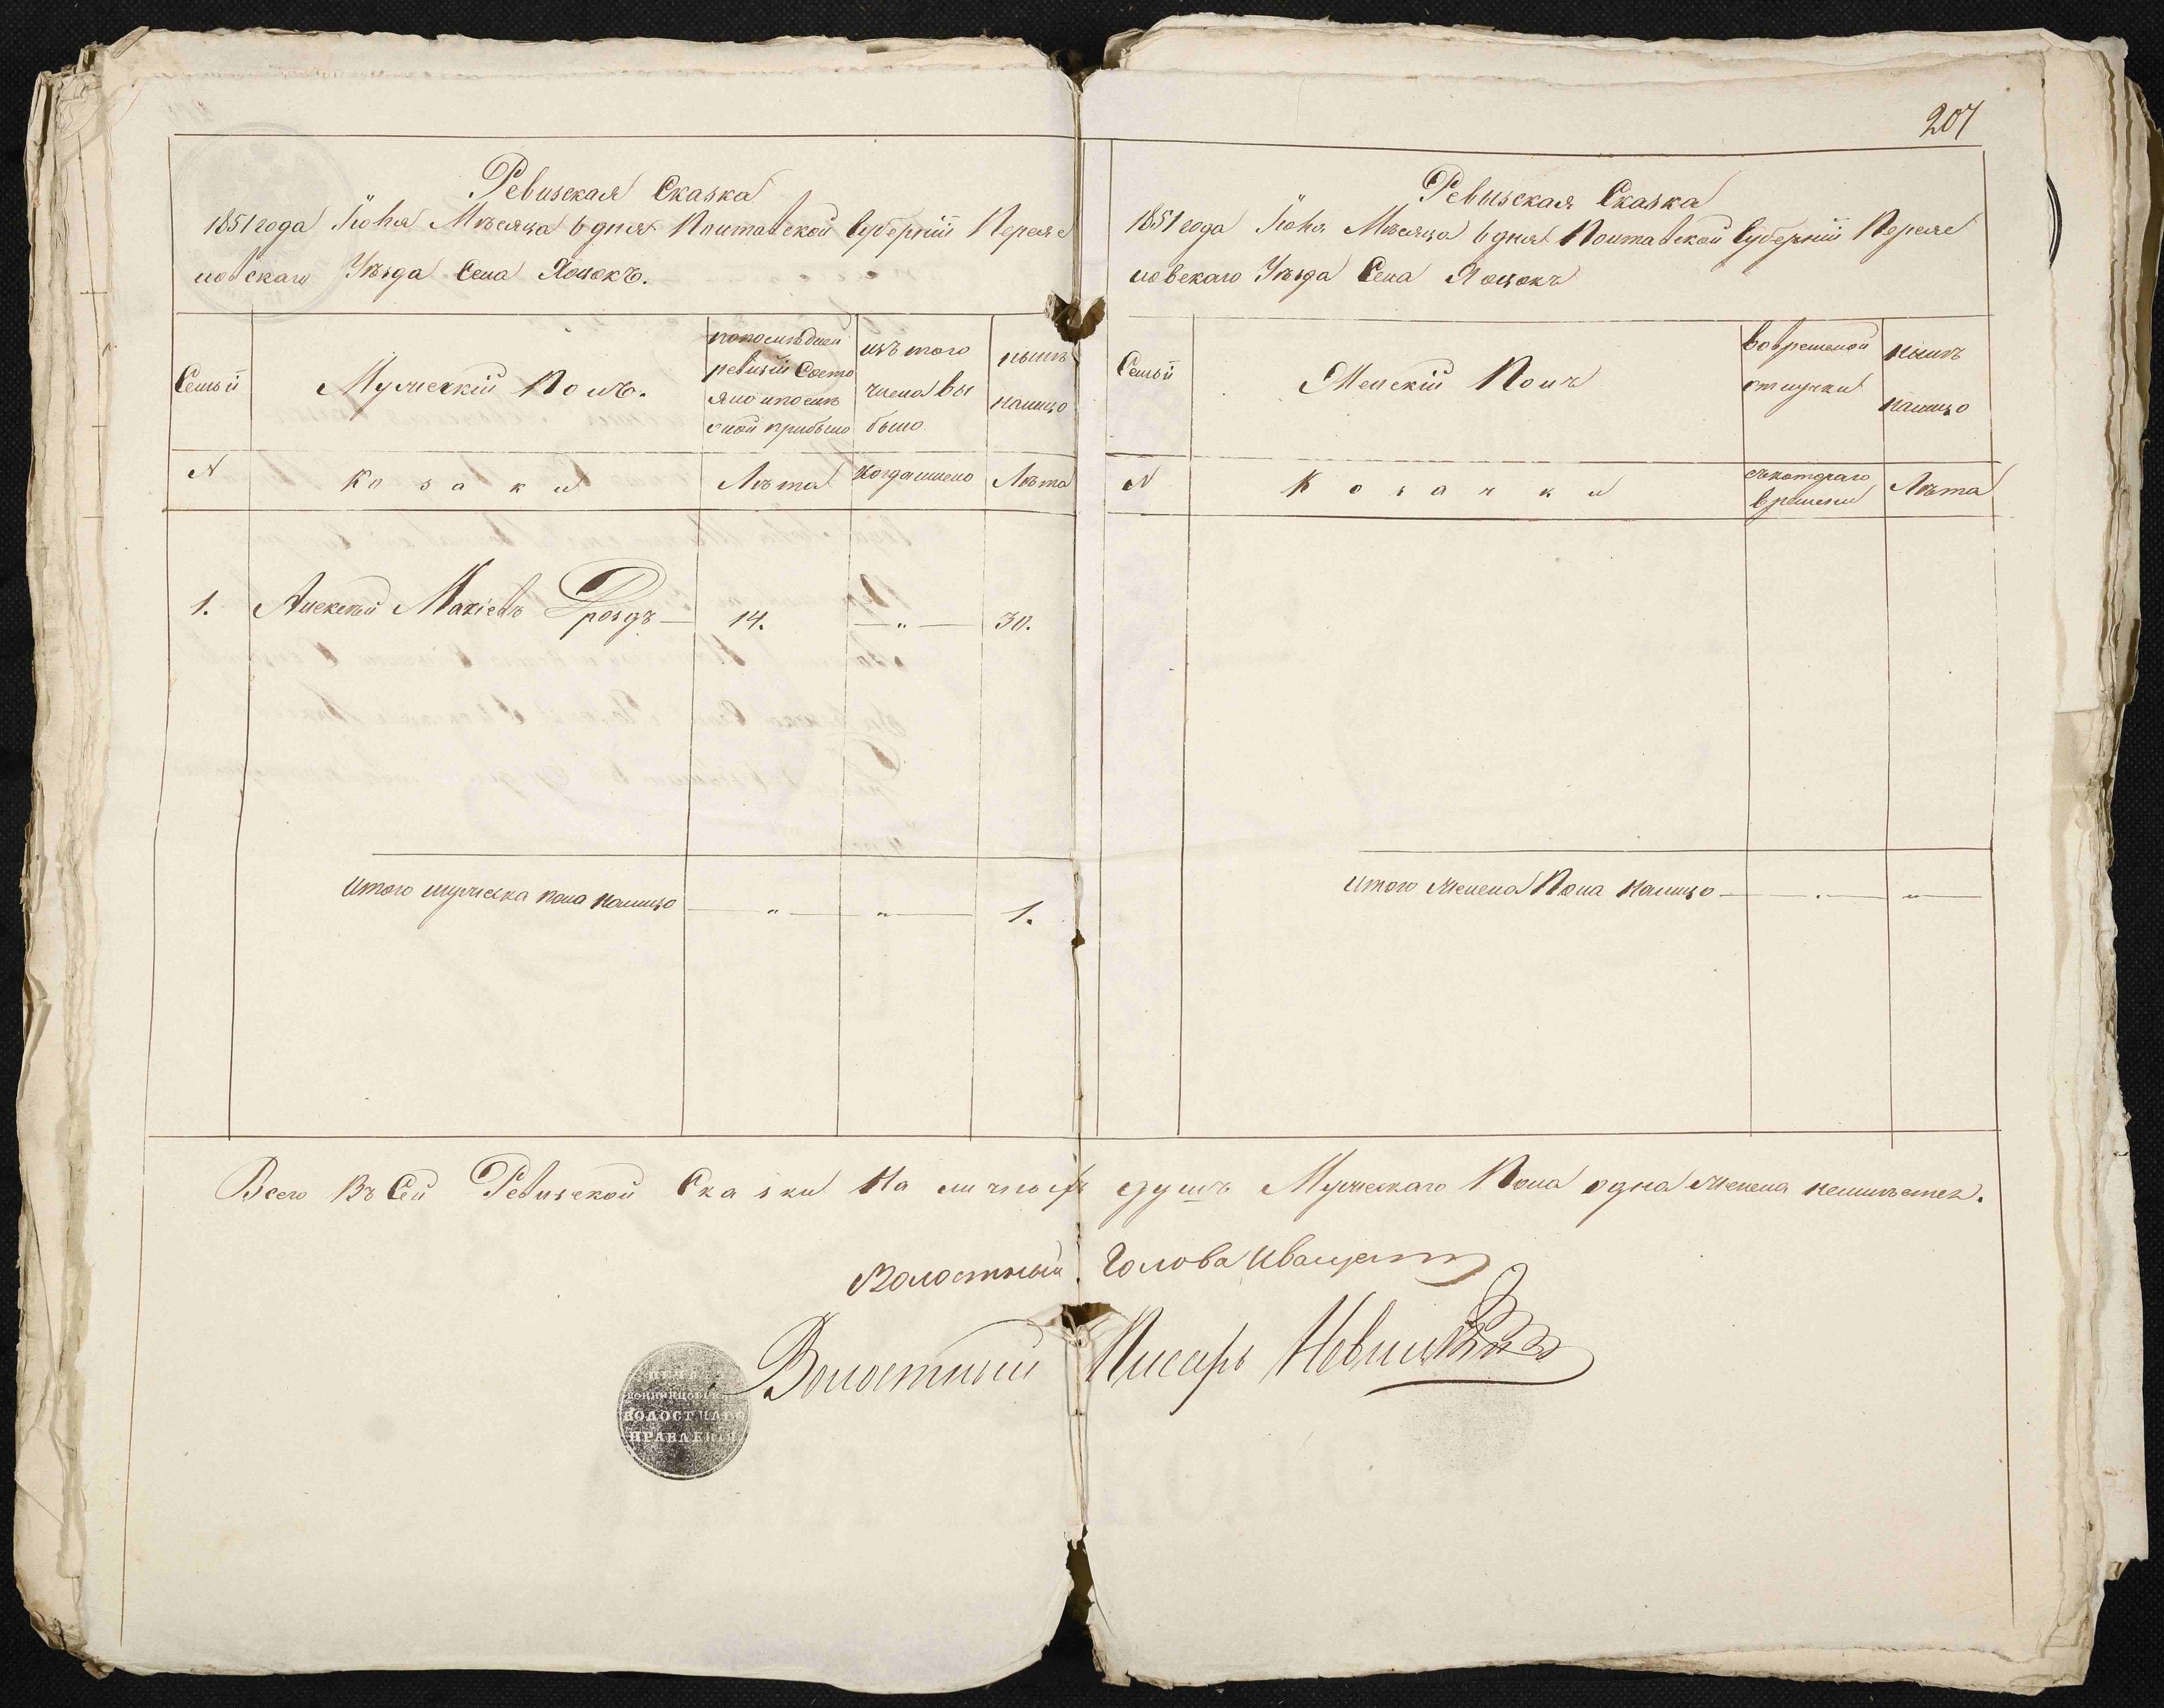 207
Ревизская Сказка
1851 года Іюня Мѣсяца 6 дня Полтавской Губерніи Переяс
ловскаго Уѣзда Села Яцокъ.
Семьи
Мужескій Полъ.
по последней
ревизіи Состо
яло и послѣ
оной прибыло
изъ того
числа вы
было
нынѣ
налицо
N
Козаки
Лѣта
Когда имено
Лѣта
1. Алексѣй Макіевъ Дроздъ — 14. — „ — 30.
Итого мужеска пола налицо — „ — „ — 1.
Ревизская Сказка
1851 года Іюня Мѣсяца 6 дня Полтавской Губерніи Переяс
ловскаго Уѣзда Села Яцокъ
Семьи
Женскій Полъ
во временой
отлучки
нынѣ
налицо
N
Козачки
съкотораго
времени
Лѣта
Итого женска Пола налицо — „ — „ —
Всего Въ Сей Ревизской Сказки На личныхъ душъ Мужескаго Пола одна женска неимѣется.
Волостный Голова Иващенко
Волостный Писарь
ПЕЧА
ВОЛОСТНАГО
ПРАВЛЕНІЯ